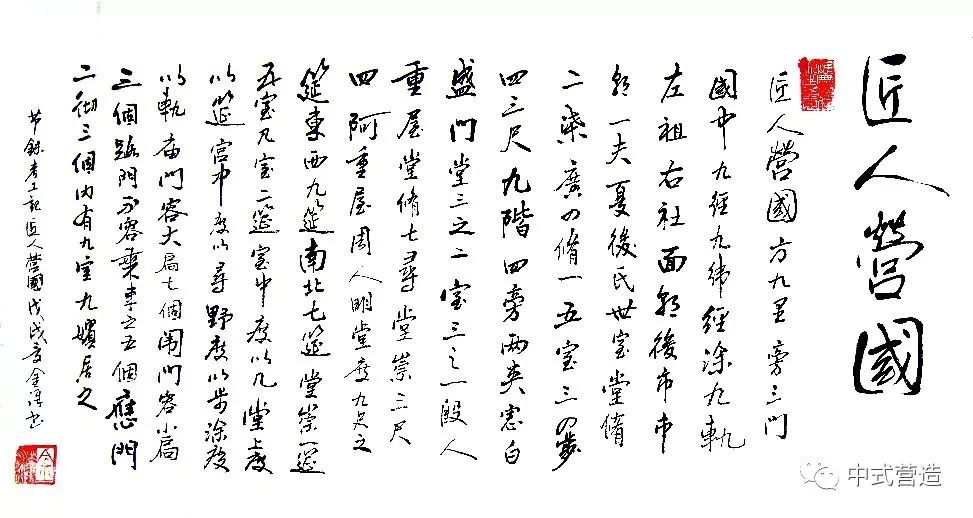 匠人營國
匠人營國方九里旁三門
國中九經九緯經涂九軌
左祖右社面朝後市市
朝一夫夏後氏世室堂脩
二柒廣四脩一五室三四步
四三尺九階四旁兩夾窓白
盛門堂三之二室三之一殷人
重屋堂脩七尋堂崇三尺
四阿重屋周人明堂度九尺之
筵東西九筵南北七筵堂崇一筵
五室凡室二筵室中度以几堂上度
以筵宮中度以尋野度以步涂度
以軌廟門容大扃七個闱門容小扃
三個路門不容乘車之五個應門
二彻三個内有九室九嬪居之
节錄考工記匠人營國戊戌年金
中式营造